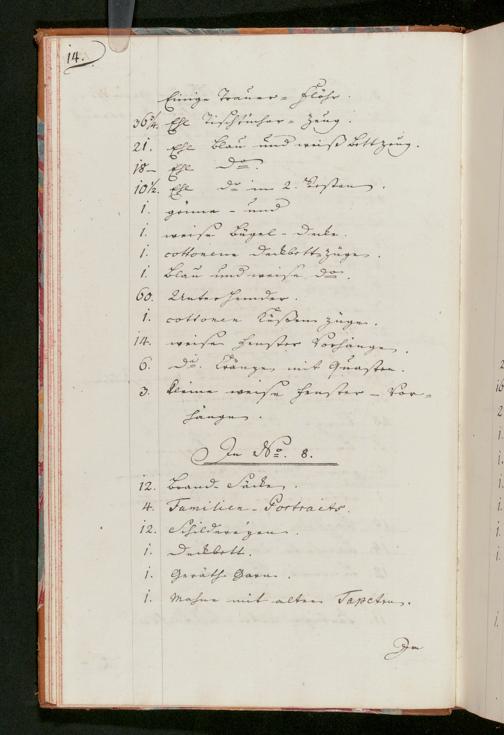 14.
Einige Trauer-Flöhr.
36 3/4. Ehl Tischtücher-Zeug.
21. Ehl blau und weiß Bettzeug.
18 - Ehl Do.
10 1/2. Ehl do in 2. Resten.
1. grüne - und
1. weise Bügel-Decke.
1. cottonene Deckbettzüge.
1. blau und weise do.
60. Unterhemder.
1. cottonen Küßenzüge.
14. weise Fenster Vorhänge.
6. do. Kränze mit Quasten.
3. kleine weise Fenster-Vor-
hänge.
In No. 8.
12. Brand-Säcke.
4. Familien-Portraits.
12. Schildereyen.
1. Deckbett.
1. Geräth
1. Mahne mit alten Tapeten.
In
2
16
2
1.
1.
1.
1.
1.